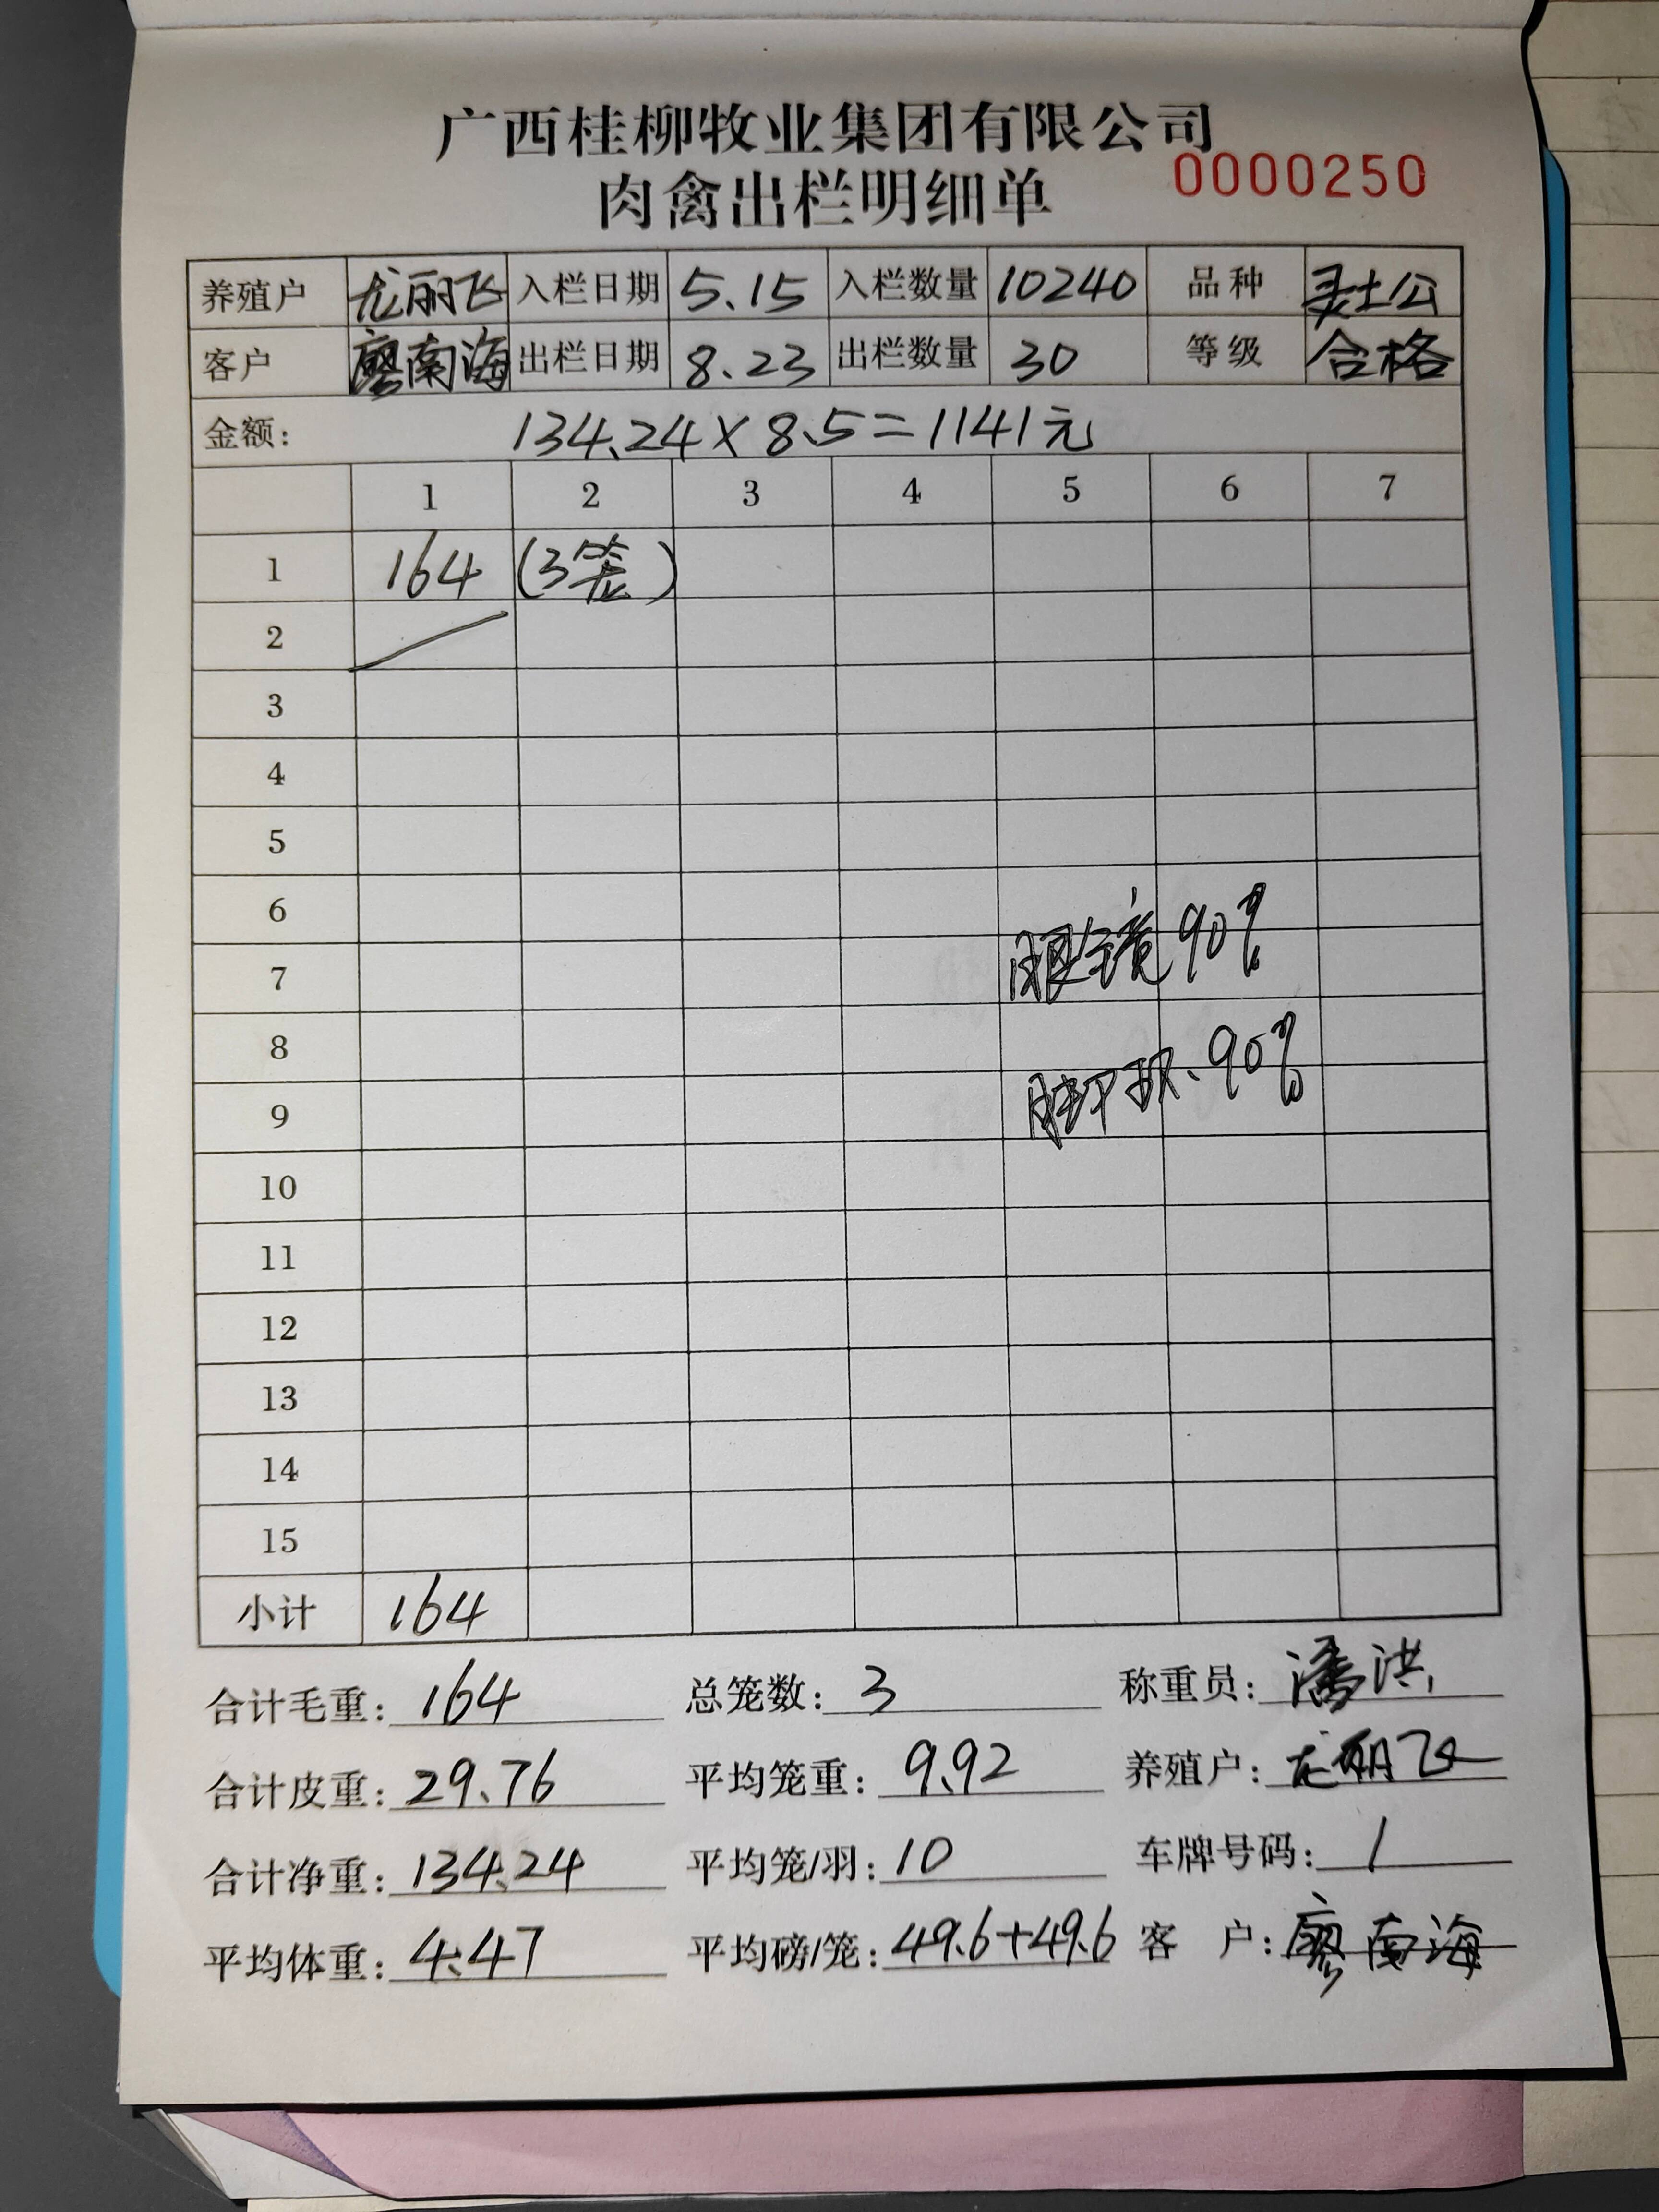 广西桂柳牧业集团有限公司
肉禽出栏明细单 0000250
养殖户 龙丽飞 入栏日期 5.15 入栏数量 10240 品种 灵土公
客户 廖南海 出栏日期 8.23 出栏数量 30 等级 合格
金额: 134.24×8.5=1141元
1 2 3 4 5 6 7
1 164 (3笼)
2
3
4
5
6
7 眼镜90%
8
9 90%
10
11
12
13
14
15
小计 164
合计毛重: 164 总笼数: 3 称重员: 潘洪
合计皮重: 29.76 平均笼重: 9.92 养殖户: 龙丽飞
合计净重: 134.24 平均笼/羽: 10 车牌号码: /
平均体重: 4.47 平均磅/笼: 49.6+49.6 客 户: 廖南海